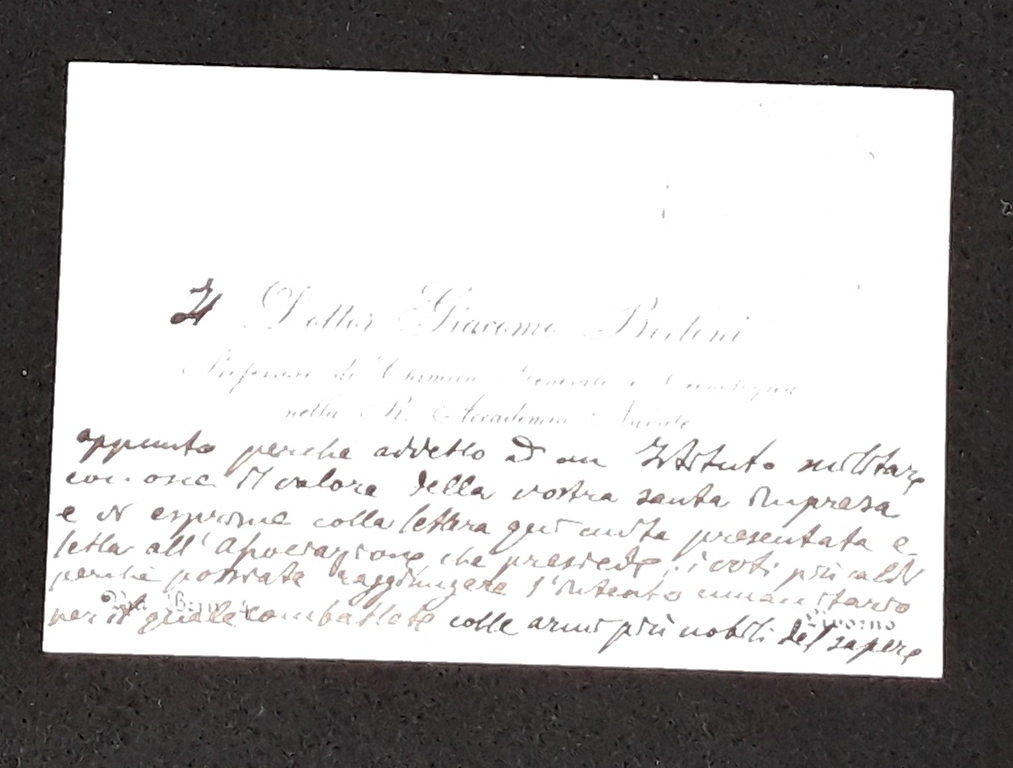 Il Dottor Giacomo Bertini
Professore di Chimica Generale e
nella R. Accademia Navale
appunto perchè addetto ad un Istituto militare
conosce il valore della vostra santa impresa
e vi esprime colla lettera qui unita presentata e
letta all'Associazione che presiede, i voti più caldi
perchè possiate raggiungere l'intento umanitario
Livorno
per il quale combattete colle armi più nobili del sapere